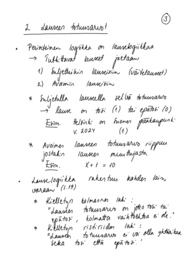 ③
2. Lauseen totuusarvo!
• Perinteinen logiikka on lauselogiikkaa
→ Tutkittavat lauseet jaetaan
1) Suljettuihin lauseisiin (väitelauseet)
2) Avoimiin lauseisiin
• Suljetulla lauseella selvä totuusarvo
→ lause on tosi (1) tai epätosi (0)
Esim. Helsinki on Suomen pääkaupunki
v. 2024 (1)
• Avoimen lauseen totuusarvo riippuu
jostakin lauseen muuttujasta
Esim. x + 1 = 10
• Lauselogiikka rakentuu kahden lain
varaan
• Kielletyn kolmannen laki:
"Lauseen totuusarvo on joko tosi tai
epätosi, kolmatta vaihtoehtoa ei ole."
• Kielletyn ristiriidan laki:
"Lauseen totuusarvo ei voi olla yhtä aikaa
sekä tosi että epätosi."